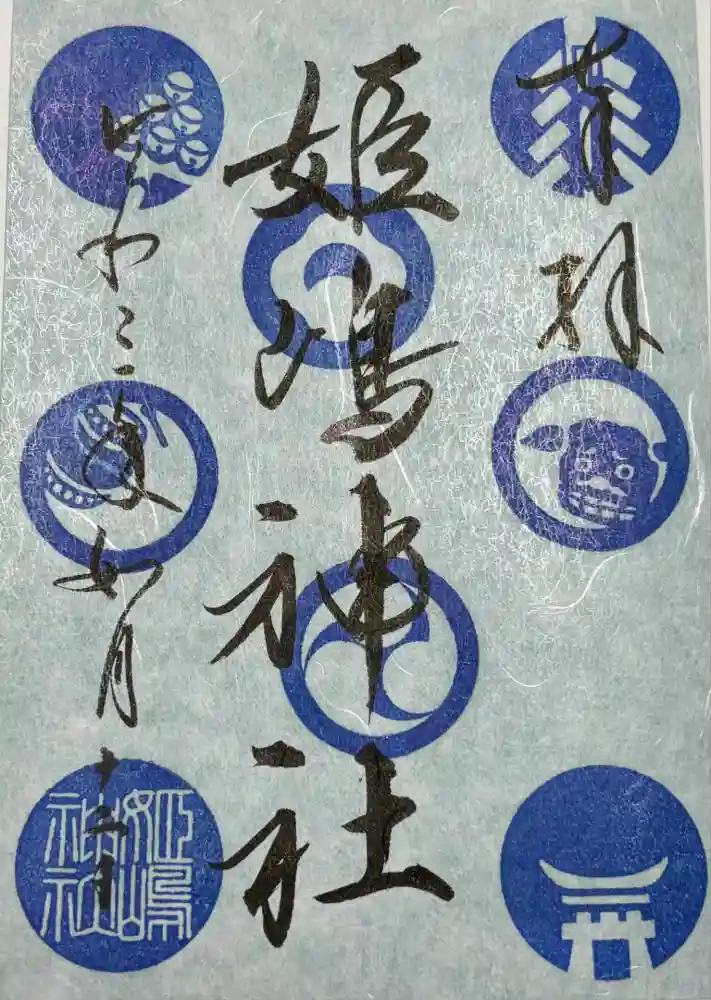 奉拝
姫嶋神社
令和三年如月十三日
姫嶋
神社